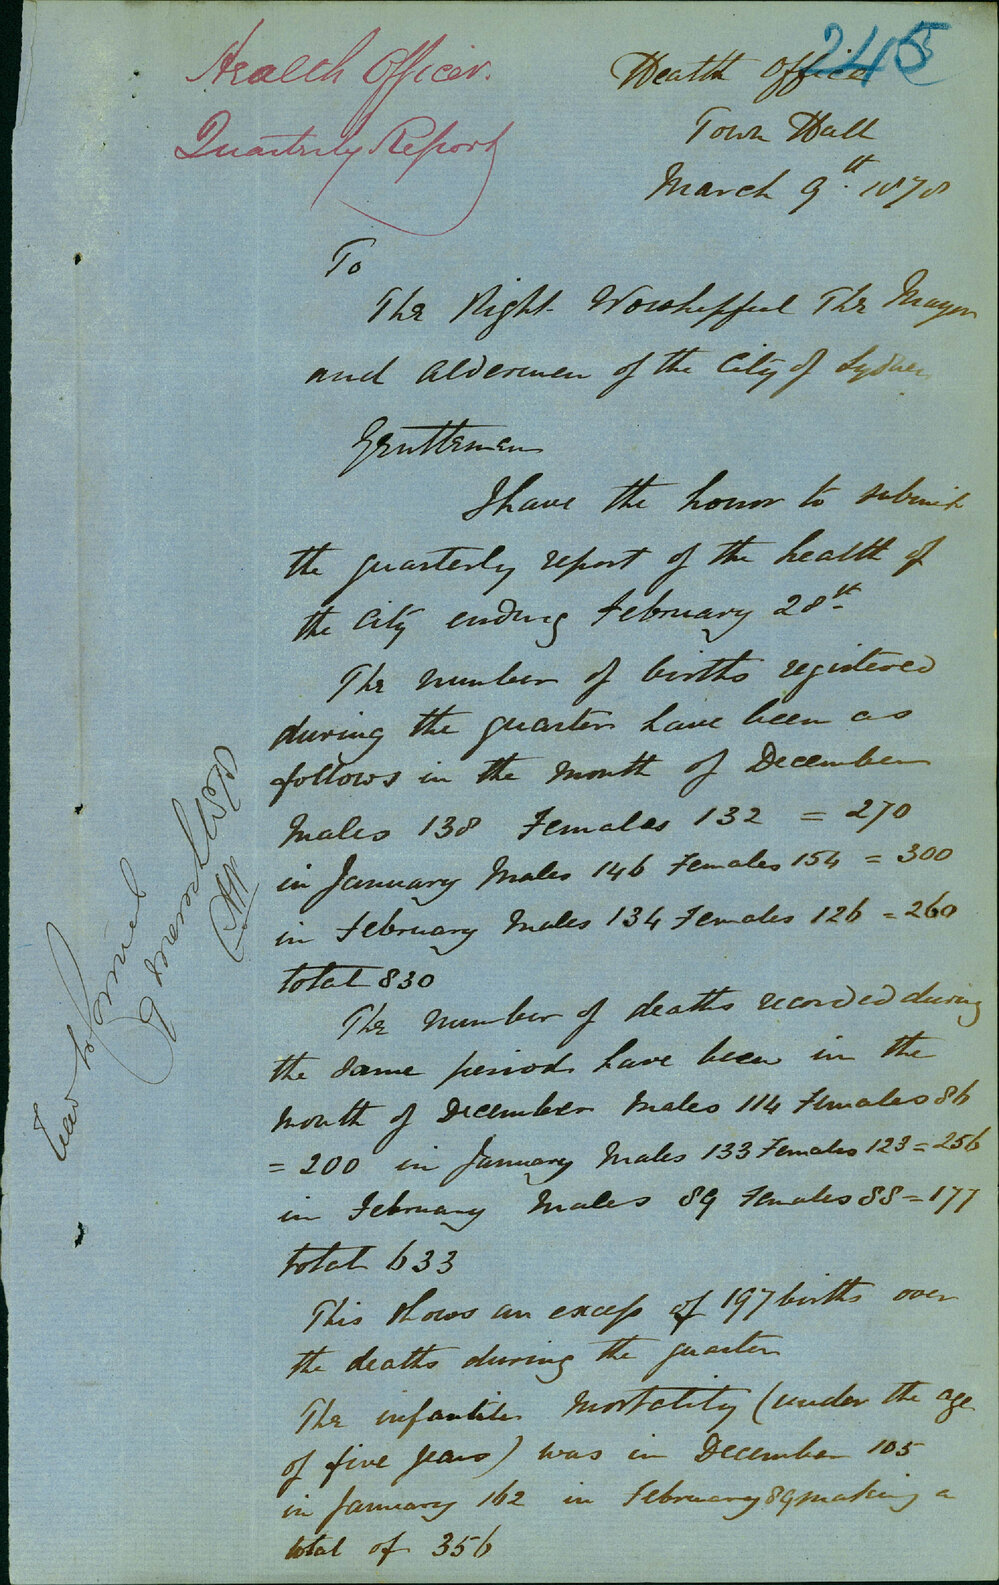 245
Health Officer.
Quarterly Report
Health Office
Town Hall
March 9th. 1878
To
The Right Worshipful The Mayor
and Aldermen of the City of Sydney
Gentlemen
I have the honor to submit
the quarterly report of the health of
the City ending February 28th
The number of births registered
during the quarter have been as
follows in the month of December
Males 138 Females 132 = 270
in January Males 146 Females 154 = 300
in February Males 134 Females 126 = 260
total 830
The number of deaths recorded during
the same period have been in the
month of December Males 114 Females 86
= 200 in January Males 133 Females 123 = 256
in February Males 89 Females 88 = 177
total 633
This shows an excess of 197 births over
the deaths during the quarter
The infantile mortality (under the age
of five years) was in December 105
in January 162 in February 89 making a
total of 356
9 March 1878